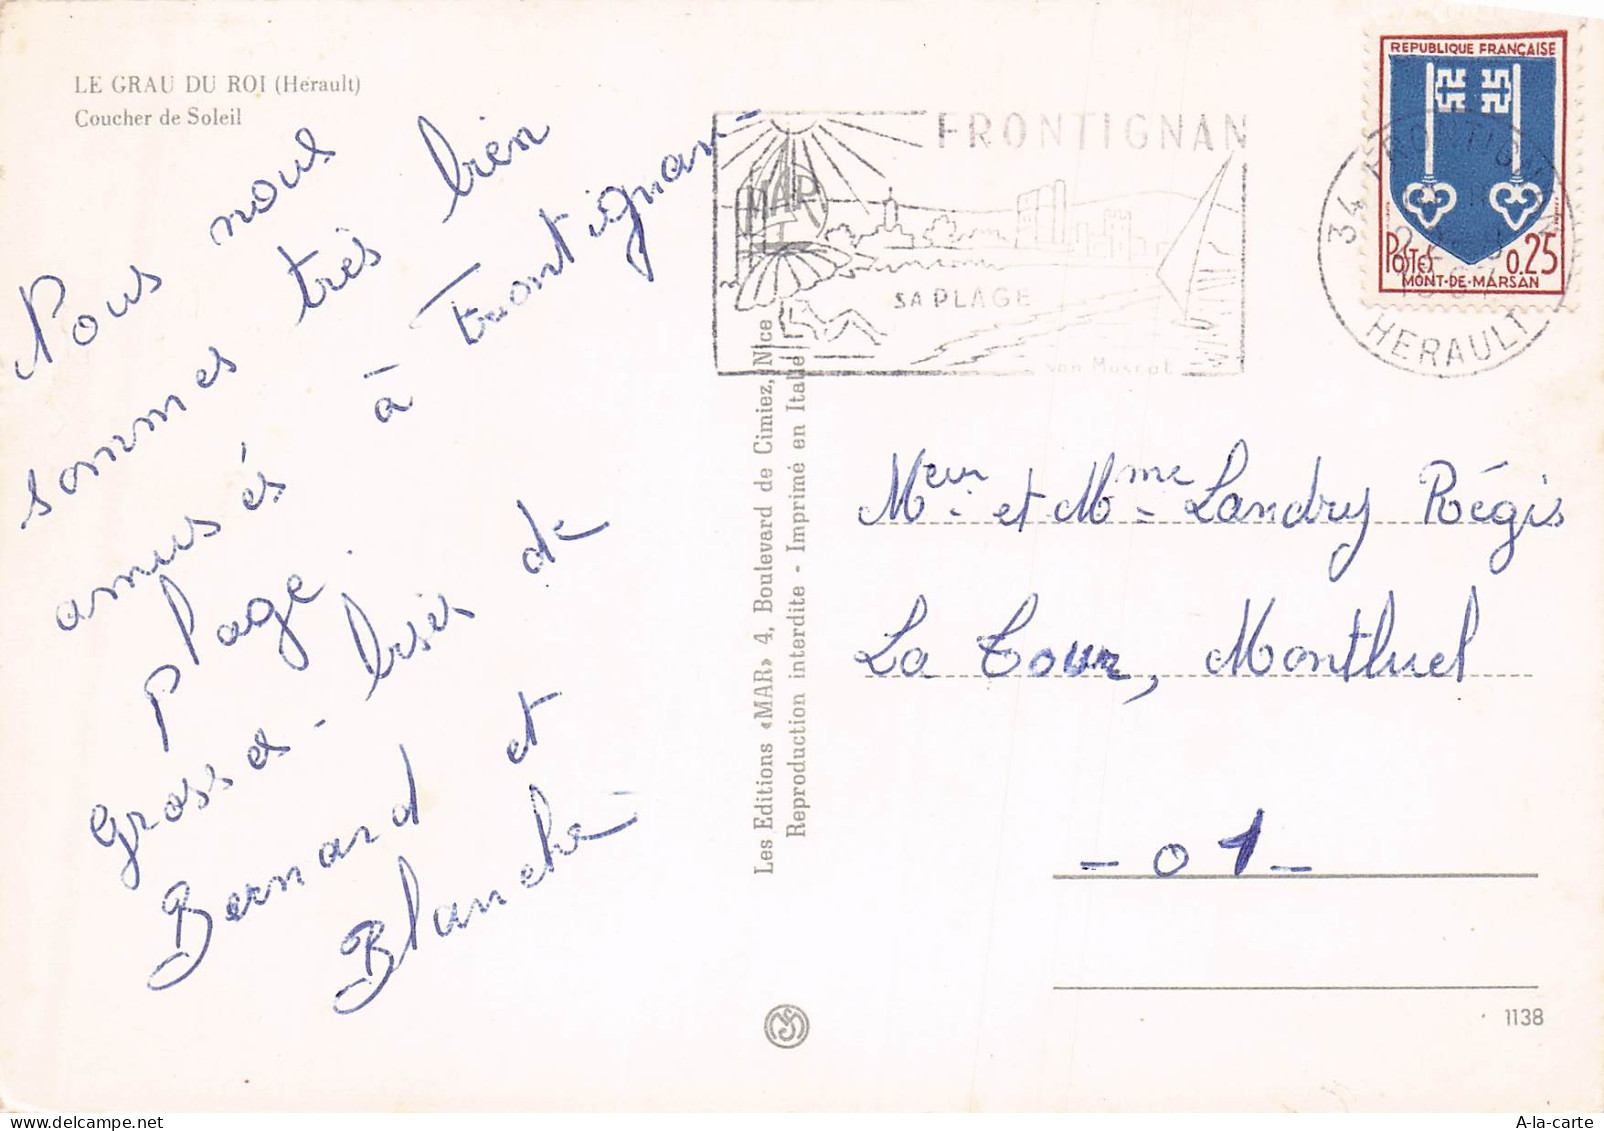 LE GRAU DU ROI (Hérault)
Coucher de Soleil
Nous nous
sommes très bien
amusés à Frontignan-
plage.
Grosses - bises de
Bernard et
Blanche
Les Editions «MAR» 4, Boulevard de Cimiez, Nice
Reproduction interdite - Imprimé en Italie
MAR
FRONTIGNAN
SA PLAGE
son Muscat
34 FRONTIGNAN
HERAULT
REPUBLIQUE FRANÇAISE
POSTES 0.25
MONT-DE-MARSAN
Meur et Mme Landry Régis
La Tour, Montluel
- 01 -
1138
A-la-carte